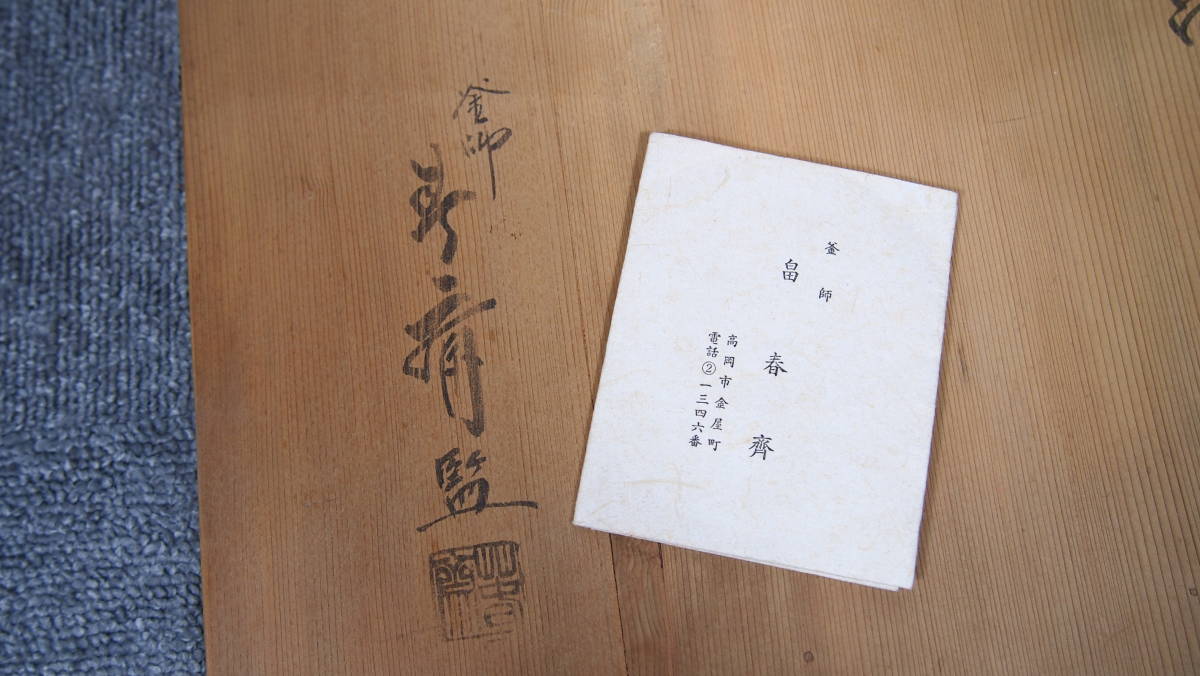 釜師
畠春齊
高岡市金屋町
電話②一三四六番
釜師
春齊監